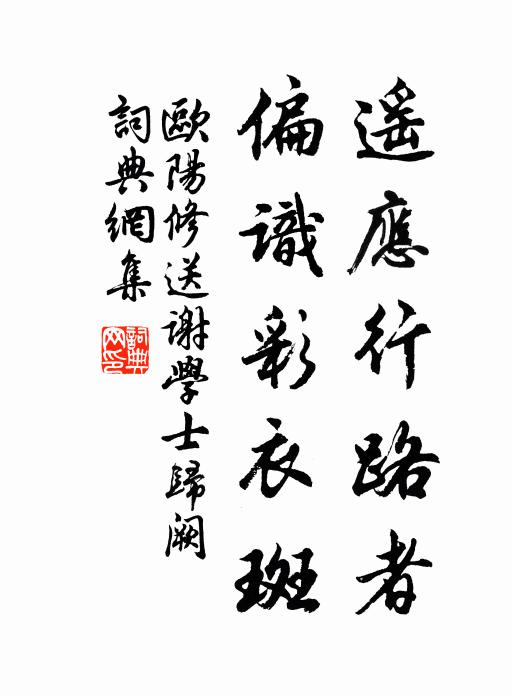 遥應行路者
偏識彩衣斑
歐陽修送謝學士歸闕
詞典網集
詞典
网印